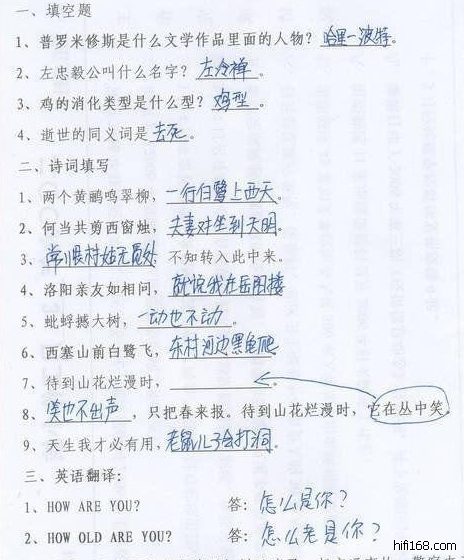 一、填空题
1、普罗米修斯是什么文学作品里面的人物？哈里一波特。
2、左忠毅公叫什么名字？左冷禅。
3、鸡的消化类型是什么型？鸡型。
4、逝世的同义词是去死。
二、诗词填写
1、两个黄鹂鸣翠柳，一行白鹭上西天。
2、何当共剪西窗烛，夫妻对坐到天明。
3、常恨村姑无觅处 不知转入此中来。
4、洛阳亲友如相问，就说我在岳阳楼
5、蚍蜉撼大树，一动也不动。
6、西塞山前白鹭飞，东村河边黑龟爬
7、待到山花烂漫时，
8、俏也不出声，只把春来报。待到山花烂漫时，它在丛中笑。
9、天生我才必有用，老鼠儿子会打洞。
三、英语翻译：
1、HOW ARE YOU? 答：怎么是你？
2、HOW OLD ARE YOU? 答：怎么老是你？
hifi168.com